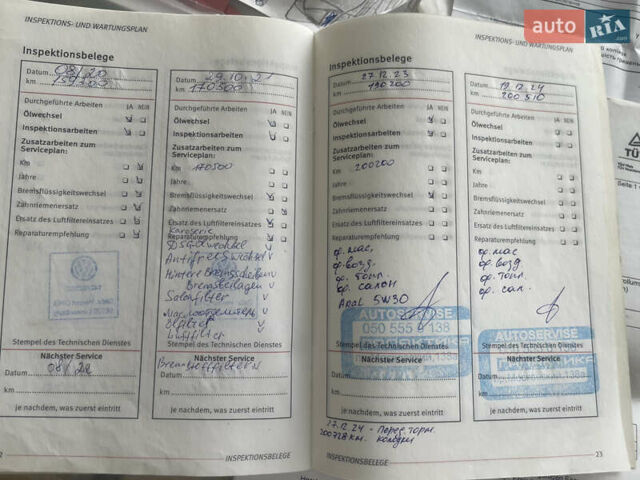 auto RIA .com
INSPEKTIONS- UND WARTUNGSPLAN
Inspektionsbelege
Datum 08/20
km
Durchgeführte Arbeiten JA NEIN
Ölwechsel
Inspektionsarbeiten
Zusatzarbeiten zum
Serviceplan:
km
Jahre
Bremsflüssigkeitswechsel
Zahnriemenersatz
Ersatz des Luftfiltereinsatzes
Reparaturempfehlung
Stempel des Technischen Dienstes
Nächster Service
Datum 08/22
km
je nachdem, was zuerst eintritt
Datum 29.10.21
km 170500
Durchgeführte Arbeiten JA NEIN
Ölwechsel
Inspektionsarbeiten
Zusatzarbeiten zum
Serviceplan:
km 170500
Jahre
Bremsflüssigkeitswechsel
Zahnriemenersatz
Ersatz des Luftfiltereinsatzes
Reparaturempfehlung
DSG Ölwechsel
Hintere Bremsscheiben
Bremsbelagen
Ölfilter
Luftfilter
Stempel des Technischen Dienstes
Nächster Service
Datum
km
je nachdem, was zuerst eintritt
INSPEKTIONSBELEGE
INSPEKTIONS- UND WARTUNGSPLAN
Inspektionsbelege
Datum 27.12.23
km 190200
Durchgeführte Arbeiten JA NEIN
Ölwechsel
Inspektionsarbeiten
Zusatzarbeiten zum
Serviceplan:
km 200200
Jahre
Bremsflüssigkeitswechsel
Zahnriemenersatz
Ersatz des Luftfiltereinsatzes
Reparaturempfehlung
ф. мас.
ф. возд.
ф. топл.
ф. салон
Aral 5W30
AUTOSERVISE
050 555 138
Stempel des Technischen Dienstes
Nächster Service
Datum
km
je nachdem, was zuerst eintritt
17.12.24 - Перед торм.
200728 км. колодки
Datum 12.24
km 200510
Durchgeführte Arbeiten JA NEIN
Ölwechsel
Inspektionsarbeiten
Zusatzarbeiten zum
Serviceplan:
km
Jahre
Bremsflüssigkeitswechsel
Zahnriemenersatz
Ersatz des Luftfiltereinsatzes
Reparaturempfehlung
ф. мас
ф. возд
ф. топл.
ф. сал.
AUTOSERVISE
Stempel des Technischen Dienstes
Nächster Service
Datum
km
je nachdem, was zuerst eintritt
INSPEKTIONSBELEGE
23